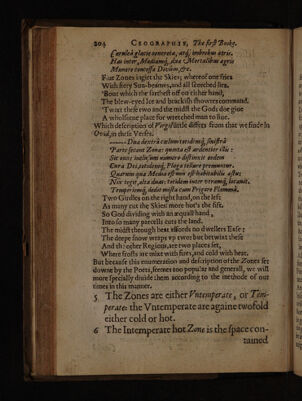 204 GEOGRAPHIE, The first Booke.
Cœruleâ glacie concreta, atq; imbribus atris.
Has inter, Mediamq; duæ Mortalibus ægris
Munere concessæ Divûm, &c.
Five Zones ingirt the Skies; whereof one fries
With fiery Sun-beames, and all scorched lies.
'Bout which the farthest off on either hand,
The blew-eyed Ice and brackish showers command.
'Twixt these two and the midst the Gods doe giue
A wholsome place for wretched man to liue.
Which description of Virgil little differs from that we finde in
Ovid, in these Verses.
Duæ dextrâ cœlum totidemq; sinistrâ
Parte secant Zonæ: quinta est ardentior illis:
Sic onus inclusum numero distinxit eodem
Cura Dei, totidemq; Plagæ tellure premuntur.
Quarum quæ Media est non est habitabilis æstu;
Nix tegit, alta duas: totidem inter utramq; locavit,
Temperiemq; dedit mista cum Frigore Flamma.
Two Girdles on the right hand, on the left
As many cut the Skies: more hot's the fift.
So God dividing with an æquall hand,
Into so many parcells cuts the land.
The midst through heat affords no dwellers Ease;
The deepe snow wraps vp two: but betwixt these
And th' other Regions, are two places set,
Where frosts are mixt with fires, and cold with heat.
But because this enumeration and description of the Zones set
downe by the Poets, seemes too popular and generall, we will
more specially divide them according to our method; in these
times in the manner.
5 The Zones are either Vntemperate, or Tem-
perate: the Vntemperate are againe twofold
either cold or hot.
6 The Intemperate hot Zone is the space con-
tained